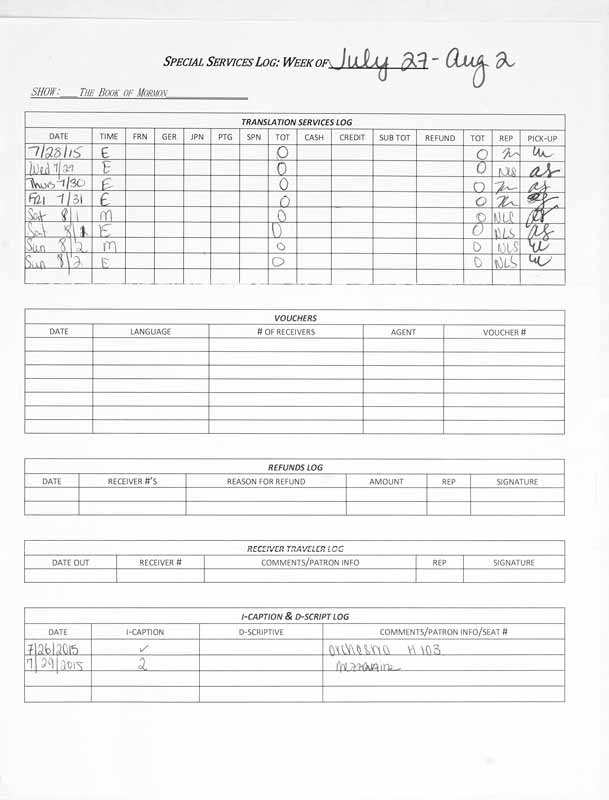 SPECIAL SERVICES LOG: WEEK OF July 27 - Aug 2
SHOW: THE BOOK OF MORMON
TRANSLATION SERVICES LOG
DATE TIME FRN GER JPN PTG SPN TOT CASH CREDIT SUB TOT REFUND TOT REP PICK-UP
7/28/15 E 0 0
Wed 7/29 E 0 0 NLS as
Thurs 7/30 E 0 0 as
FRI 7/31 E 0 0
Sat 8/1 M 0 0 NLS as
Sat 8/1 E 0 0 NLS as
Sun 8/2 M 0 0 NLS
Sun 8/2 E 0 0 NLS
VOUCHERS
DATE LANGUAGE # OF RECEIVERS AGENT VOUCHER #
REFUNDS LOG
DATE RECEIVER #'S REASON FOR REFUND AMOUNT REP SIGNATURE
RECEIVER TRAVELER LOG
DATE OUT RECEIVER # COMMENTS/PATRON INFO REP SIGNATURE
I-CAPTION & D-SCRIPT LOG
DATE I-CAPTION D-SCRIPTIVE COMMENTS/PATRON INFO/SEAT #
7/26/2015 ✓ orchestra H 103
7/29/2015 2 Mezzanine